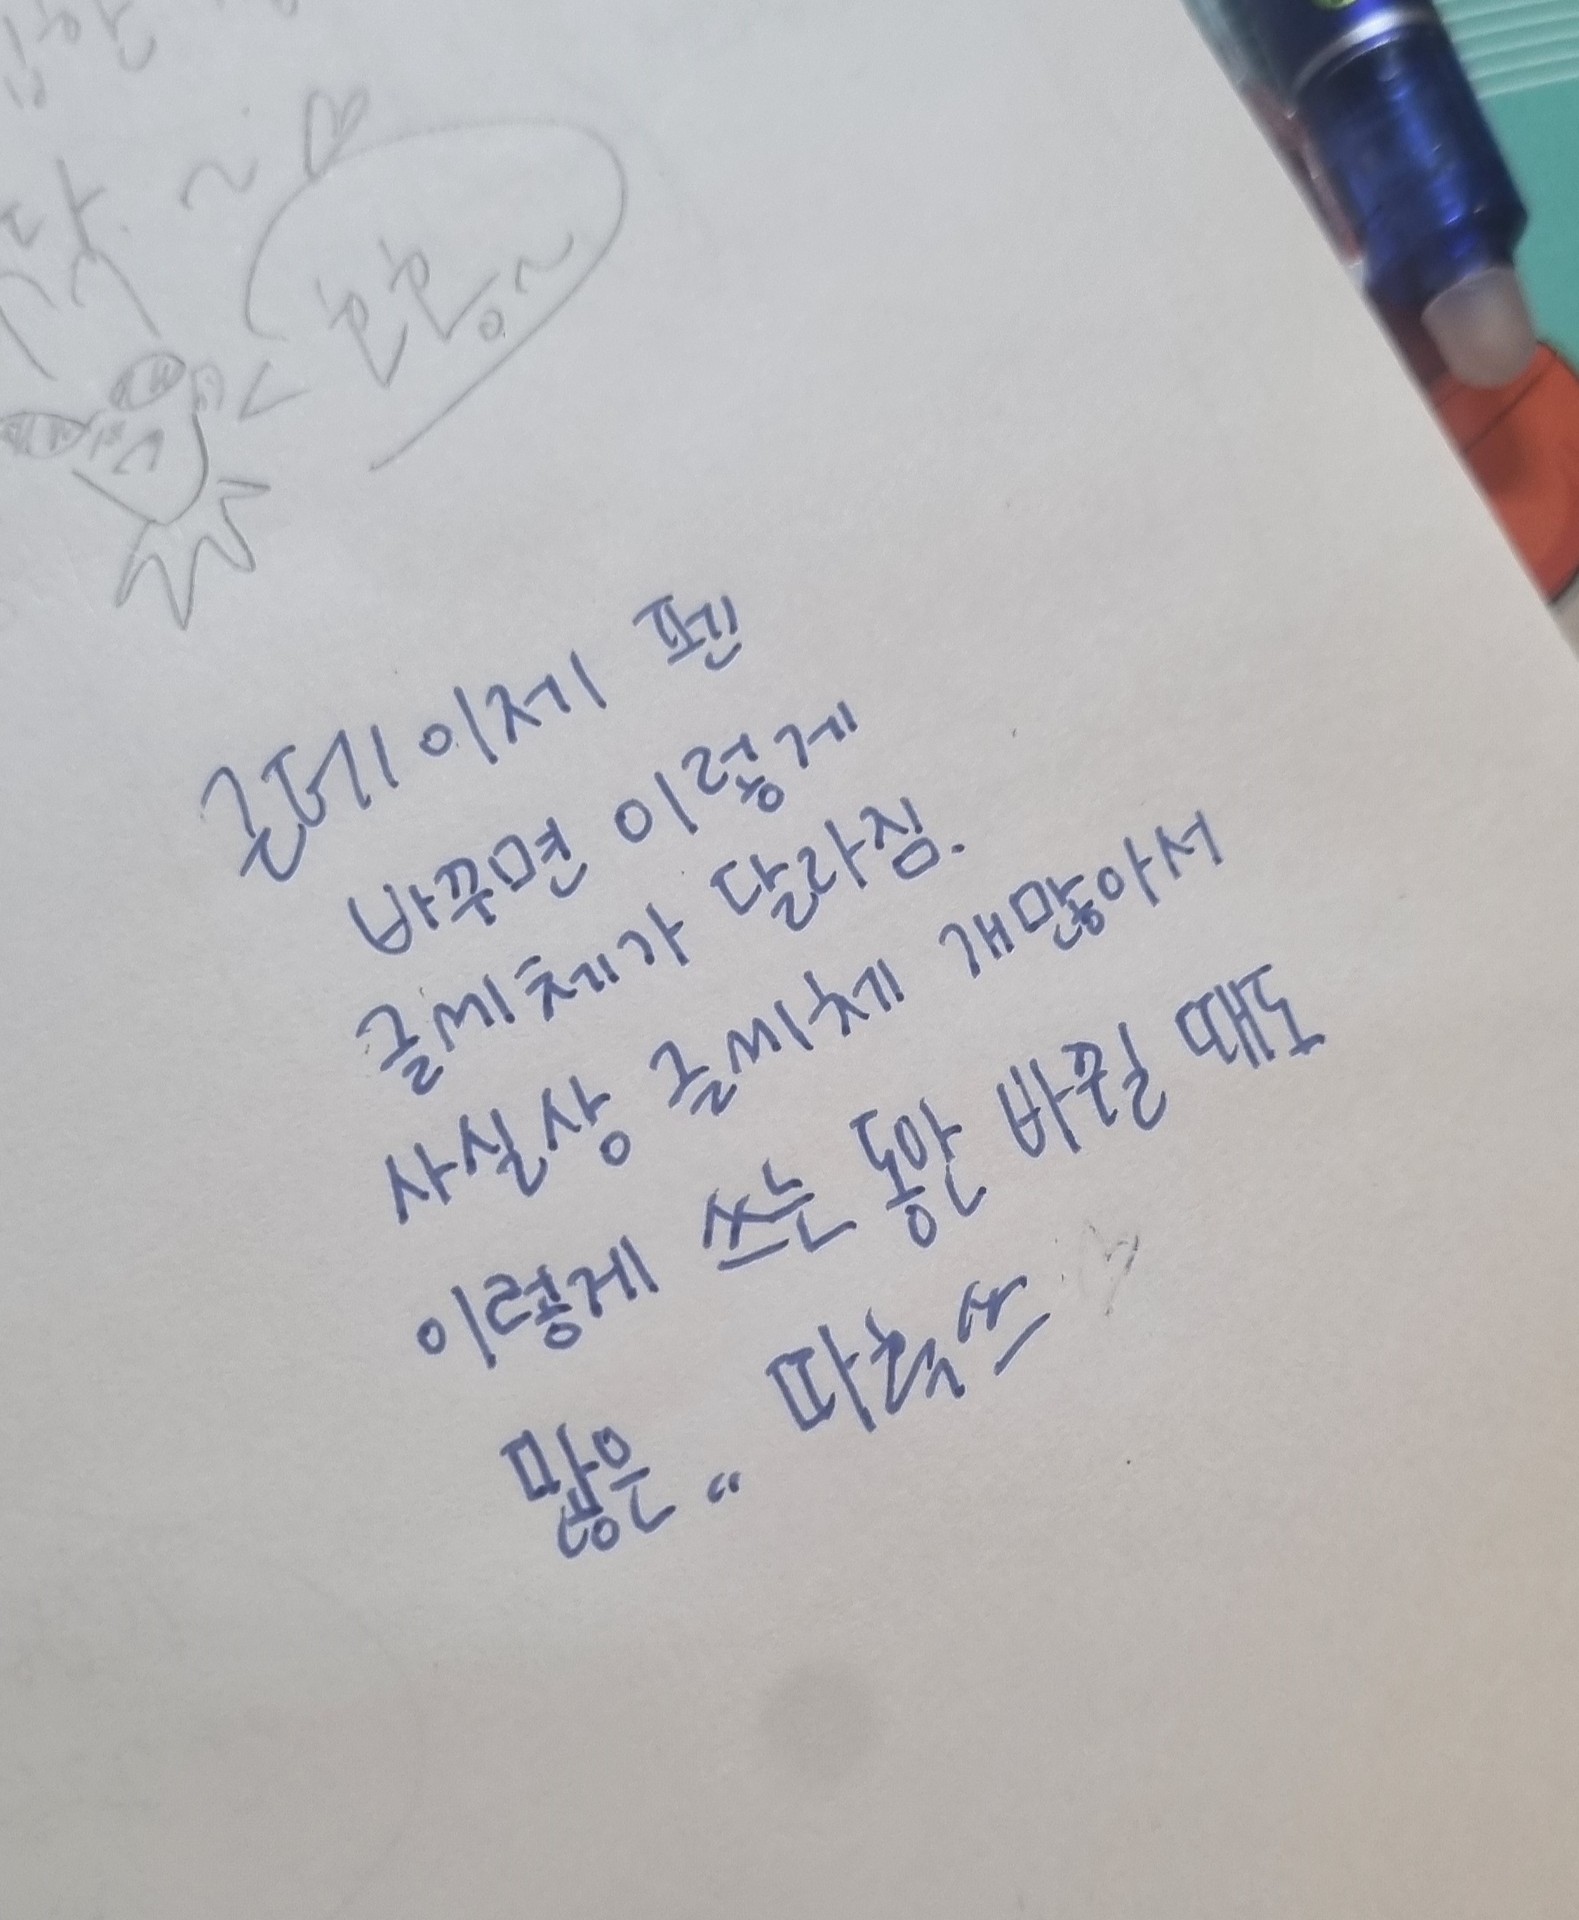 근데 이제 펜
바꾸면 이렇게
글씨체가 달라짐.
사실상 글씨체 개많아서
이렇게 쓰는 동안 바뀔 때도
많은..